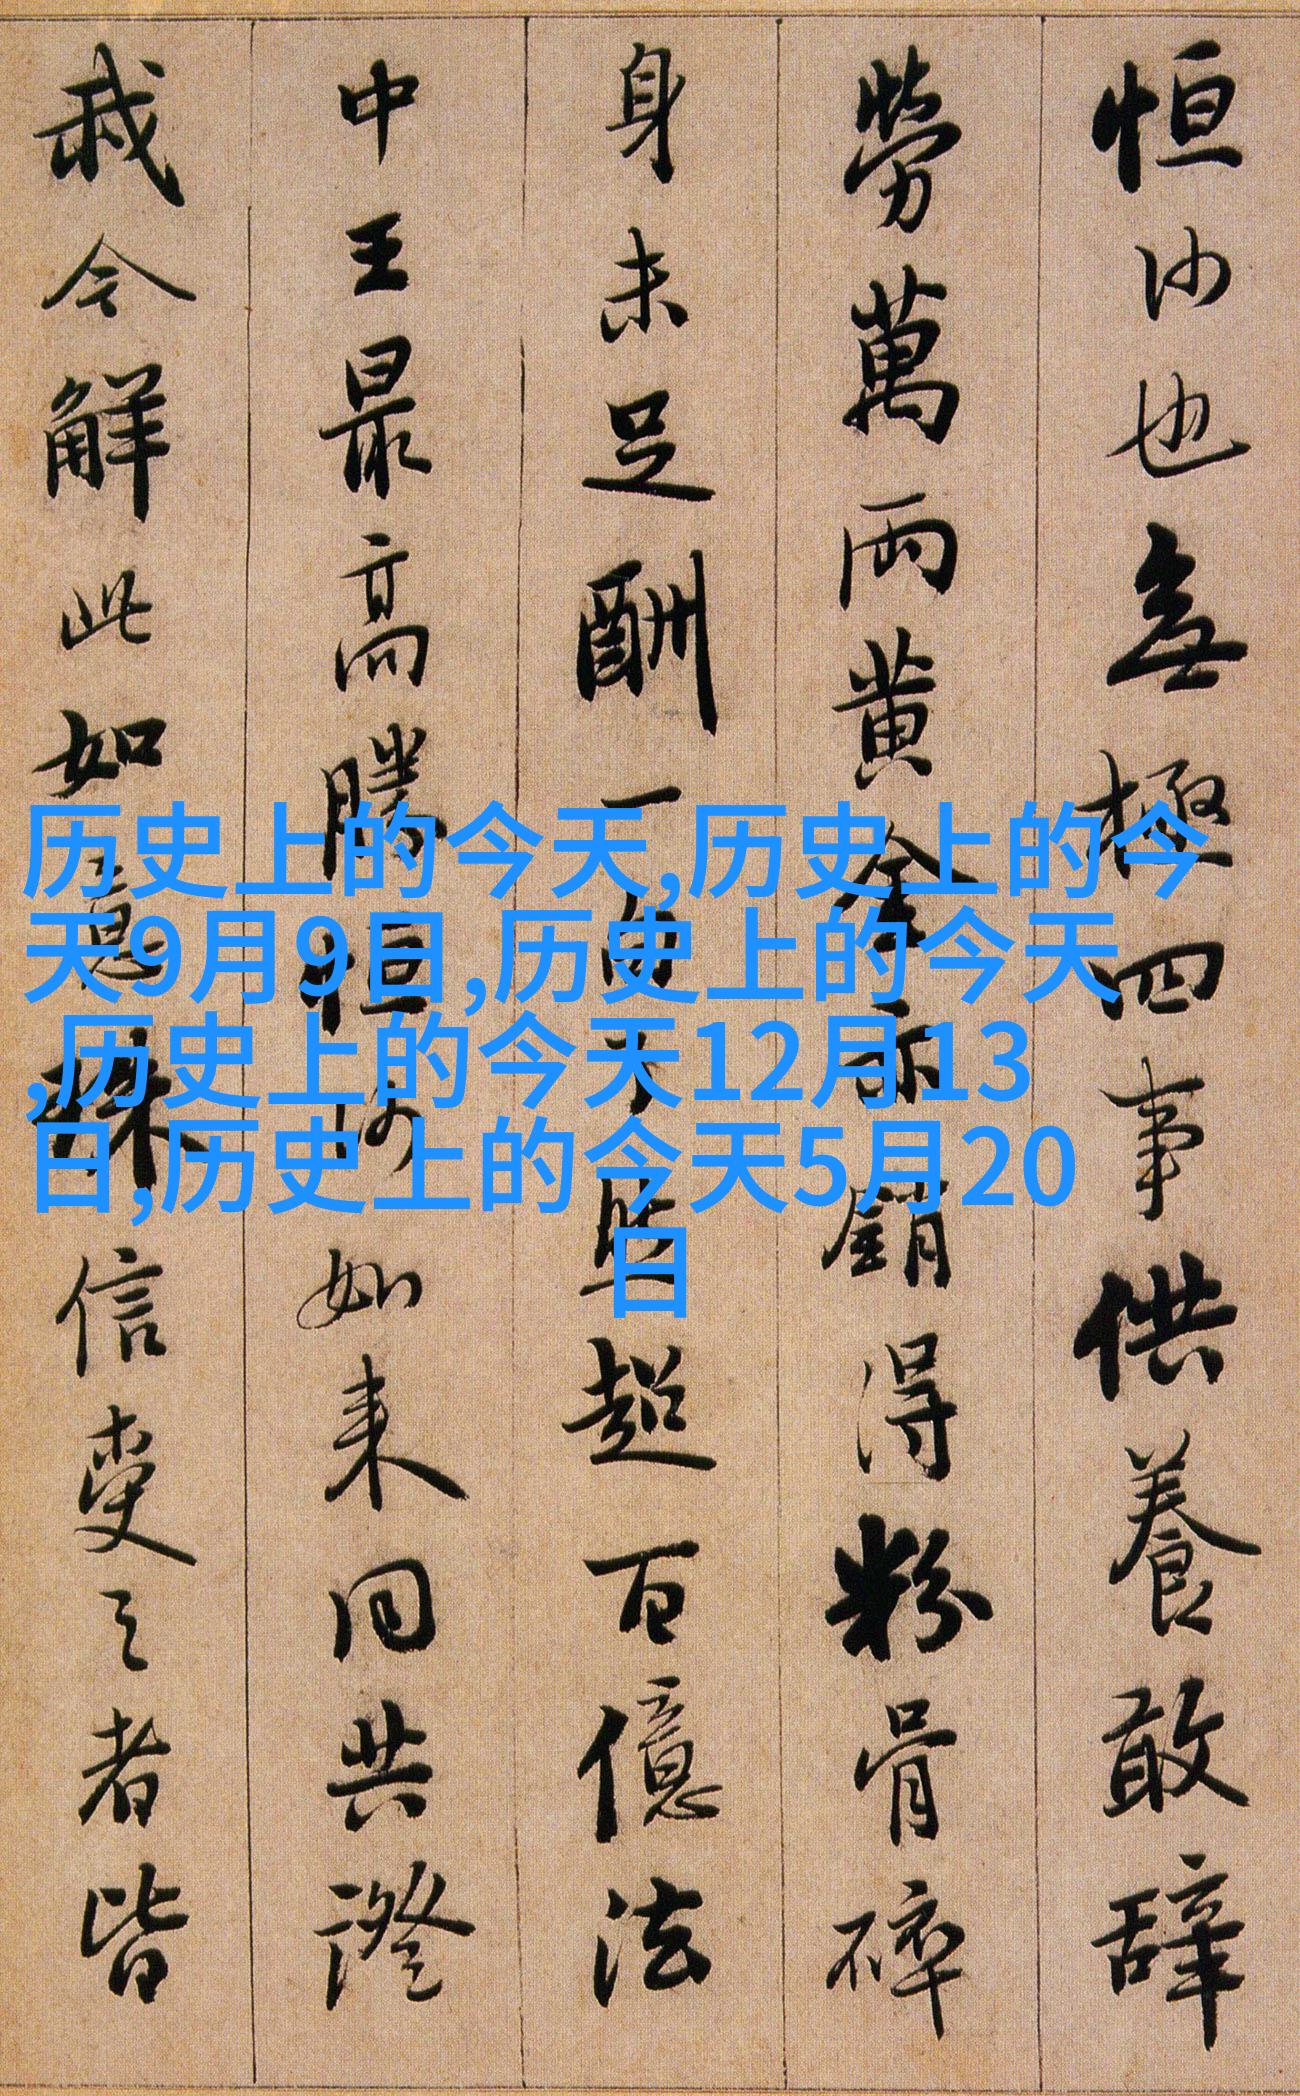 恒沙也無極四事供養敢辭
勞萬兩黃金亦銷得粉骨碎
身未足酬一句了然超百億法
中王最高勝恒沙如來同共證
我今解此如意珠信受之者皆
历史上的今天,历史上的今
天9月9日,历史上的今天
,历史上的今天12月13
日,历史上的今天5月20
日